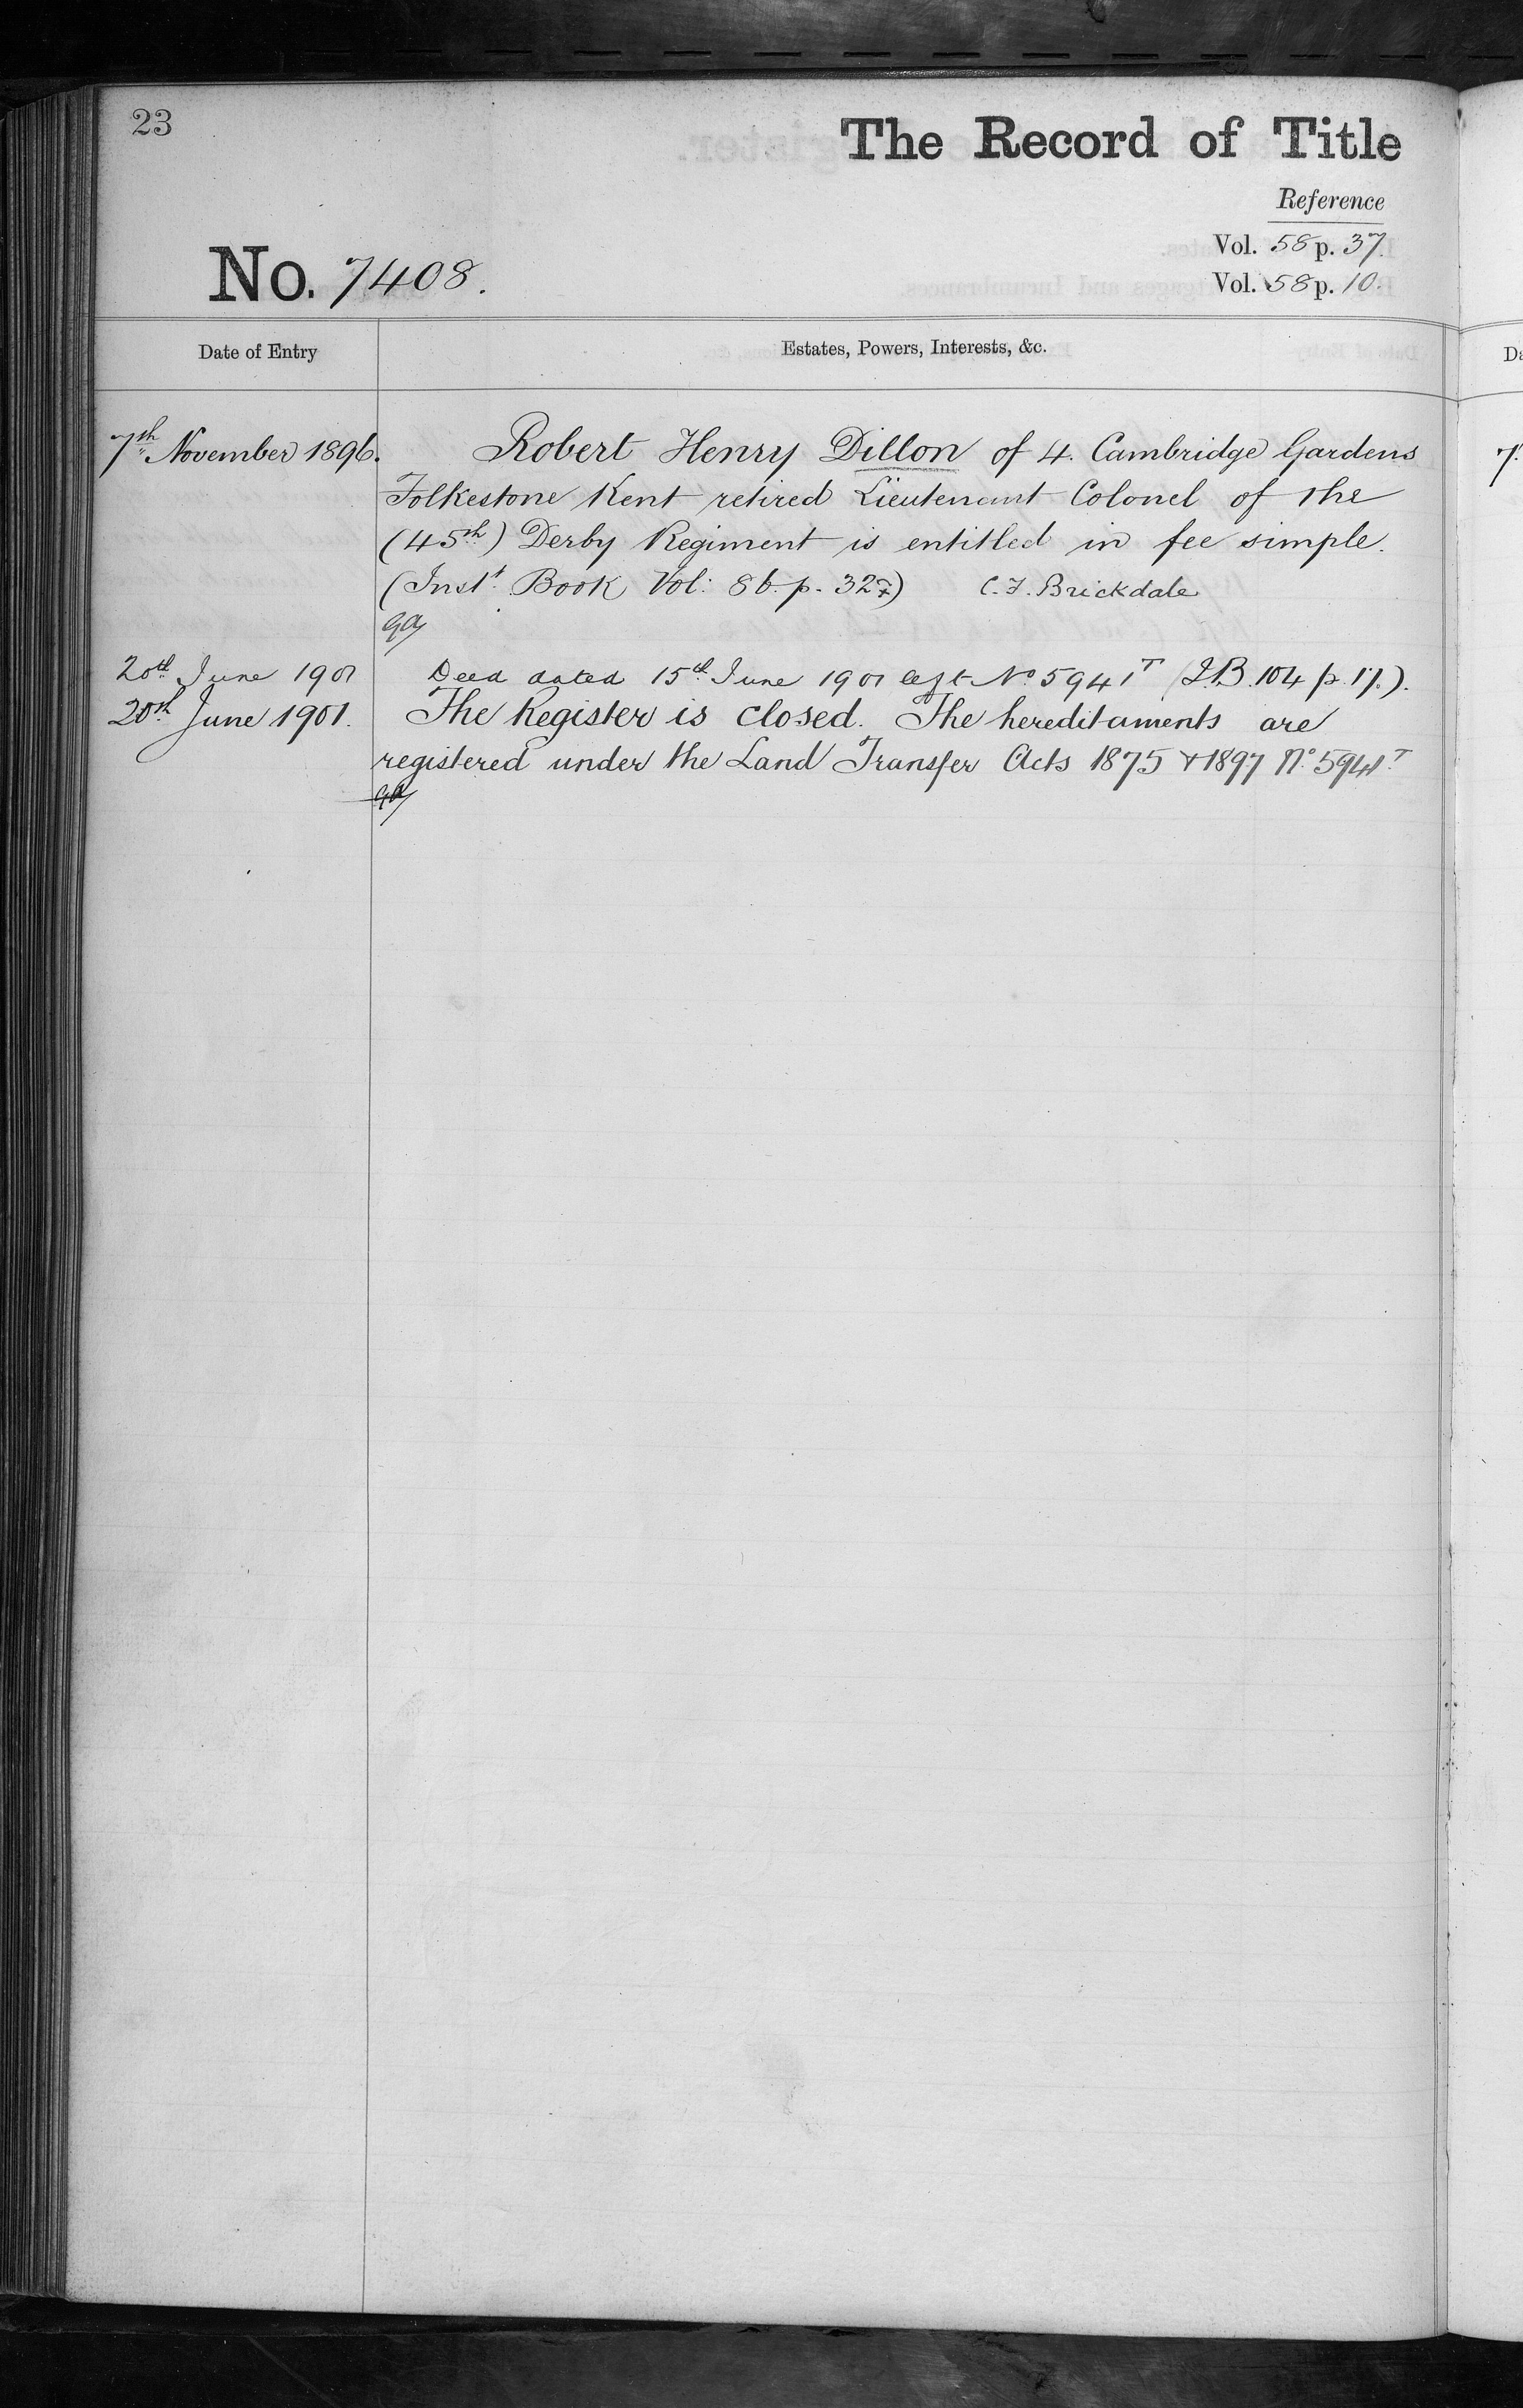 23
The Record of Title
Reference
Vol. 58 p. 37.
No. 7408.
Vol. 58 p. 10.
Date of Entry
Estates, Powers, Interests, &c.
7th November 1896.
Robert Henry Dillon of 4. Cambridge Gardens
Folkestone Kent retired Lieutenant Colonel of the
(45th) Derby Regiment is entitled in fee simple.
(Inst. Book Vol: 86. p. 327) C. F. Brickdale
20th June 1901
Deed dated 15th June 1901 No 5941T (I.B. 104 p. 17.).
20th June 1901.
The Register is closed. The hereditaments are
registered under the Land Transfer Acts 1875 & 1897 No. 5941T